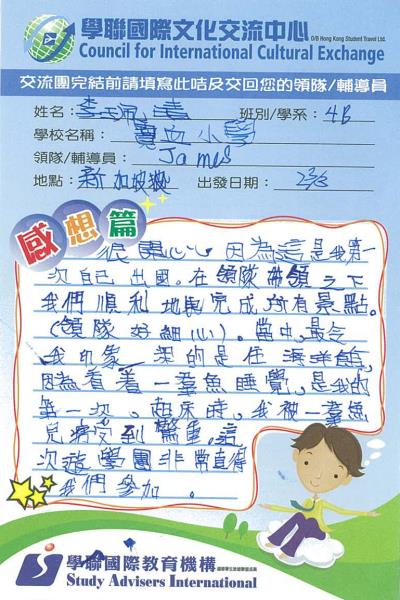 學聯國際文化交流中心
O/B Hong Kong Student Travel Ltd.
Council for International Cultural Exchange
交流團完結前請填寫此咭及交回您的領隊/輔導員
姓名: 李珮 班別/學系: 4B
學校名稱: 寶血小學
領隊/輔導員: James
地點: 新加坡 出發日期: 23/3
感想篇
很開心。因為這是我第一
次自己出國。在領隊帶領之下
我們順利地完成所有景點。
(領隊好細心)。當中,最令
我印象 深的是住海洋館,
因為看着一羣魚睡覺,是我的
第一次。起床時,我被一羣魚
兒 到驚重,這
次遊學團非常直得
我們參加。
學聯國際教育機構
Study Advisers International